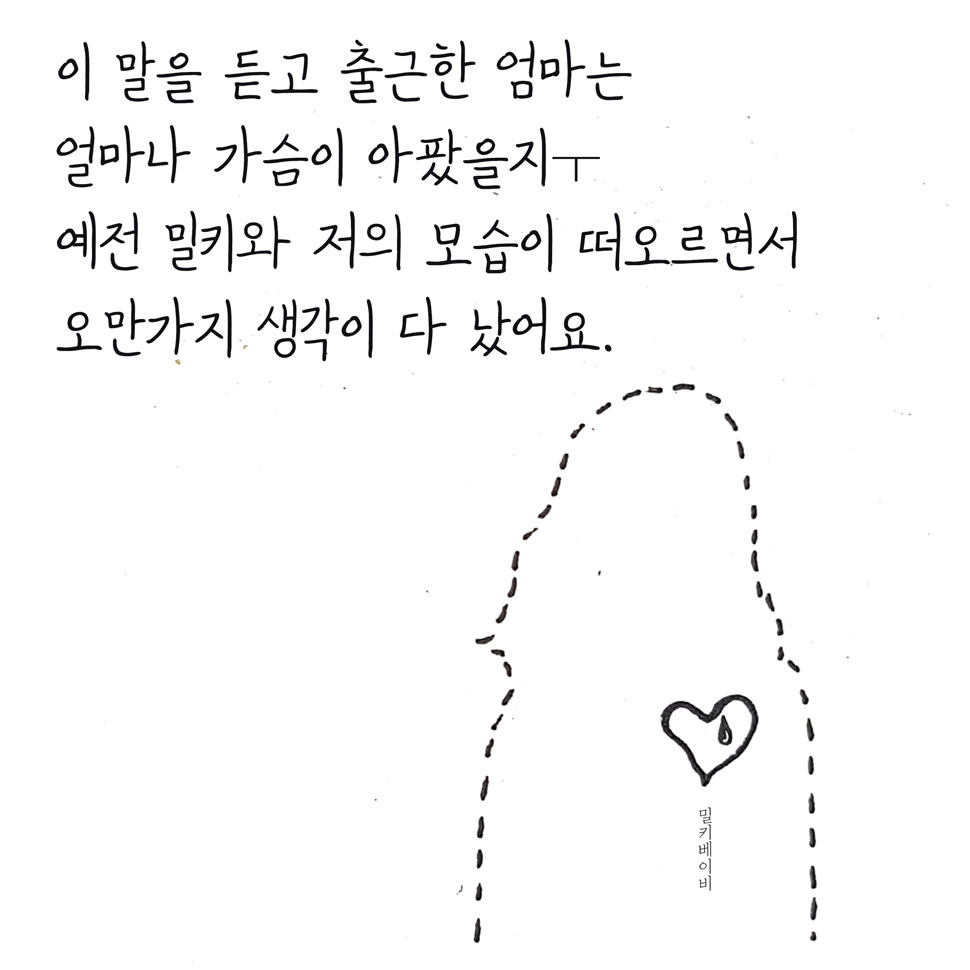 이 말을 듣고 출근한 엄마는
얼마나 가슴이 아팠을지ㅜ
예전 밀키와 저의 모습이 떠오르면서
오만가지 생각이 다 났어요.
밀키베이비